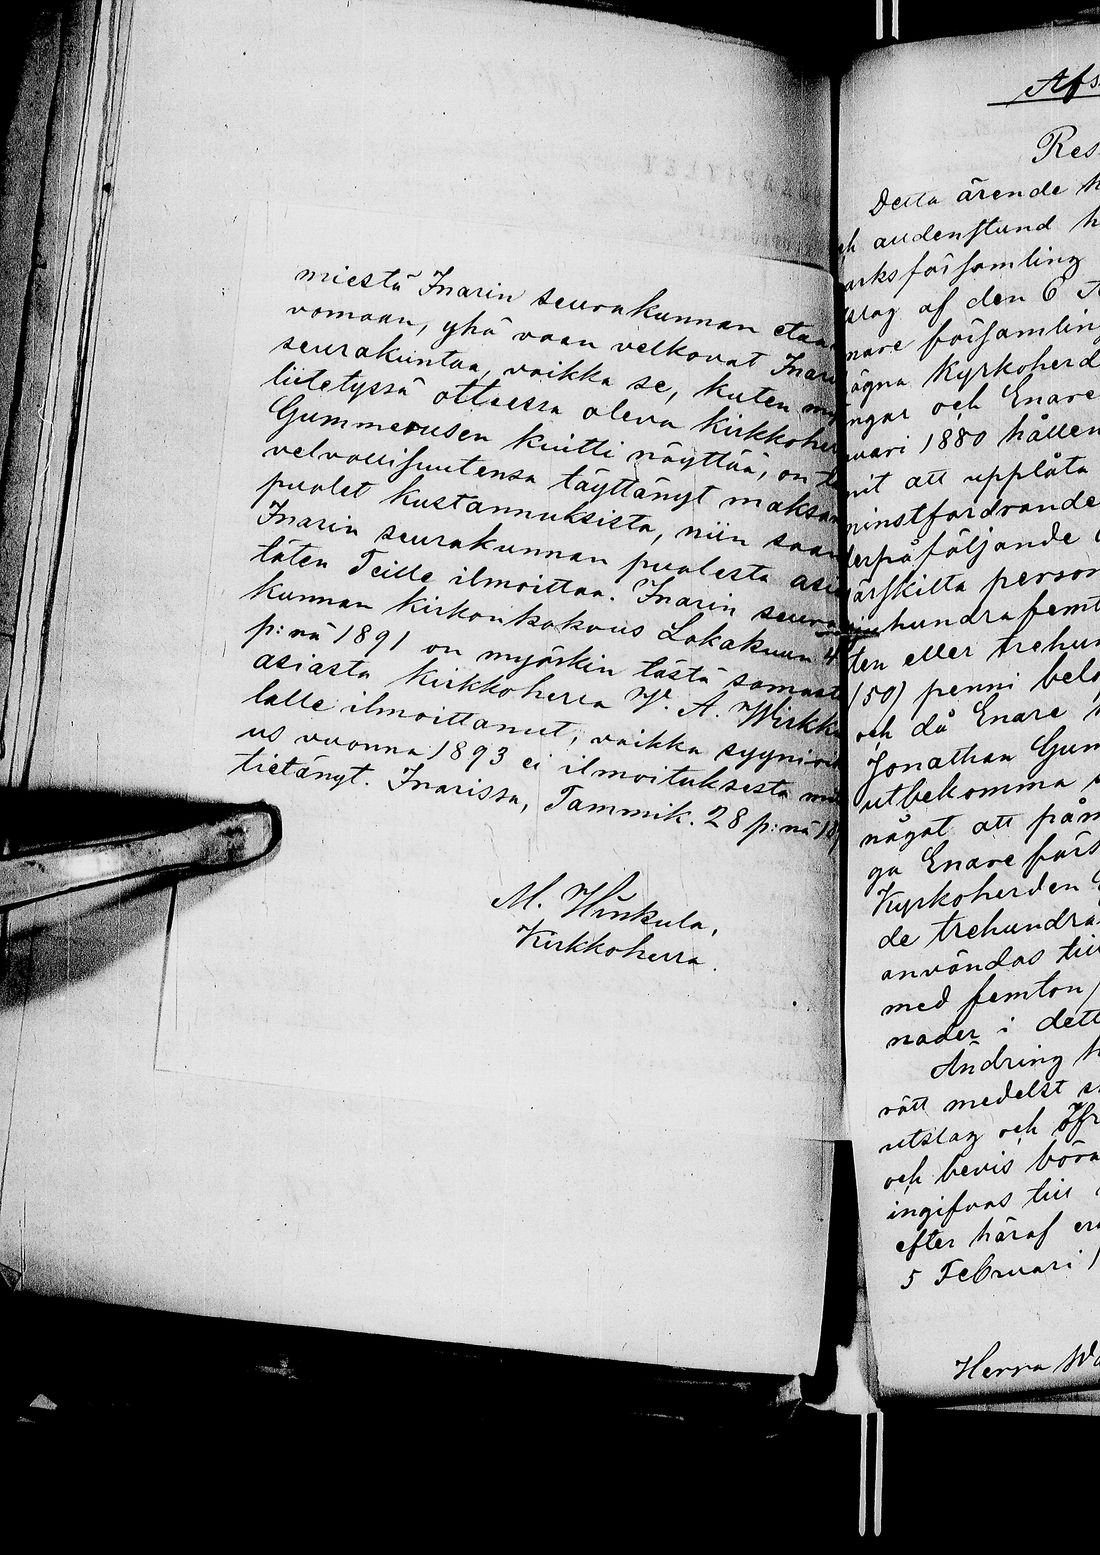 miestä Inarin seurakunnan etaa
vomaan, yhä vaan velkovat Inari
seurakuntaa, vaikka se, kuten my
liitetyssä otteessa oleva kirkkoher
Gummerusen kuitti näyttää, on
velvollisuutensa täyttänyt maksa
puolet kustannuksista, niin saan
Inarin seurakunnan puolesta asi
täten Teille ilmoittaa. Inarin seura
kunnan kirkonkokous Lokakuun 4
p:nä 1891 on myöskin tästä samast
asiasta kirkkoherra V. A. Wirkku
lalle ilmoittanut, vaikka syynissä
us vuonna 1893 ei ilmoituksesta
tietänyt. Inarissa, Tammik. 28 p:nä 18
M. Hinkula,
Kirkkoherra.
Afs
Res
Detta ärende h
ch audenstund h
arksförsamling
slag af den 6
nare församling
ägna Kyrkoherd
ngar och Enare
uari 1880 hållen
nit att upplåta
minstfordrande
derpåföljande
ärskilta person
hundrafemt
ten eller trehun
(50) penni belo
och då Enare
Jonathan Gum
utbekomma
något att påm
ga Enare förs
Kyrkoherden G
de trehundra
användas till
med femton
nader i dett
Ändring h
rätt medelst
utslag och öfr
och bevis böra
ingifvas till
efter häraf
5 Februari 1
Herra Wa